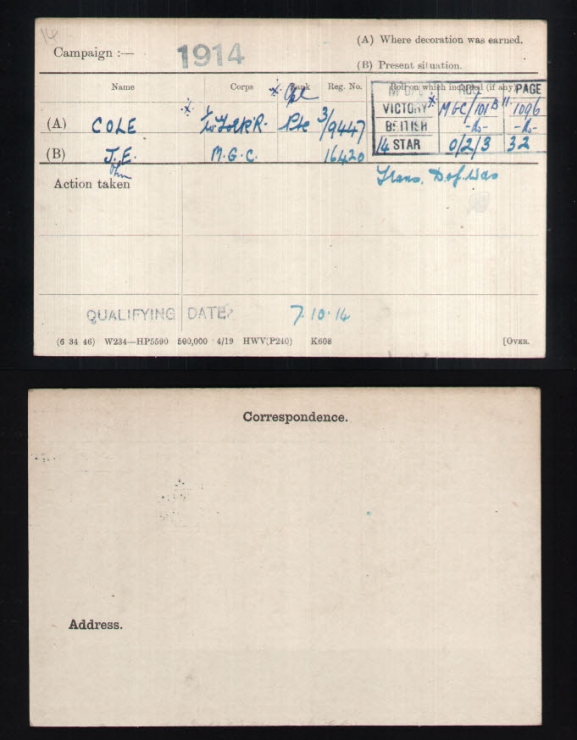 14
Campaign :— 1914
(A) Where decoration was earned.
(B) Present situation.
Name Corps Rank Reg. No. Roll on which included (if any)
MEDAL ROLL PAGE
* * Cpl
VICTORY * MGC/101B11 1096
(A) COLE YorkR. Pte 3/9447
BRITISH -do- -do-
(B) J.E. M.G.C. 16420
14 STAR 0/2/3 32
John
Action taken
Trans. D of Was
QUALIFYING DATE 7.10.14
(6 34 46) W234—HP5590 500,000 4/19 HWV(P240) K608 [Over.
Correspondence.
Address.